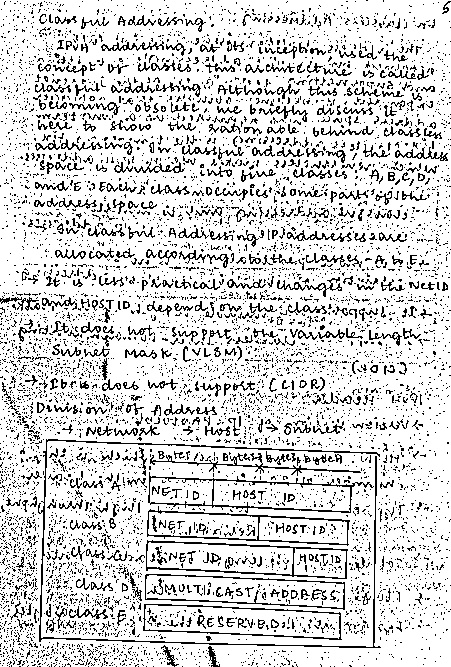 5
Classful Addressing.
IPV4 addressing, at its inception used the
concept of classes. this architecture is called
classful addressing. Although this scheme is
becoming obsolete we briefly discuss it
here to show the rationable behind classless
addressing. In classful addressing, the address
space is divided into five classes: A, B, C, D,
and E. Each class occupies some parts of the
address space
In classful Addressing IP addresses are
allocated according to the classes - A to E.
→ It is less practical and changes in the NET ID
and HOST ID, depend on the class
It does not support the variable length
Subnet Mask (VLSM)
→ does not support (CIDR)
Division of Address
→ Network → Host → Subnet
Byte1 Byte2 Byte3 Byte4
class A NET ID HOST ID
class B NET ID HOST ID
class NET ID HOST ID
class D MULTICAST ADDRESS
class E RESERVED